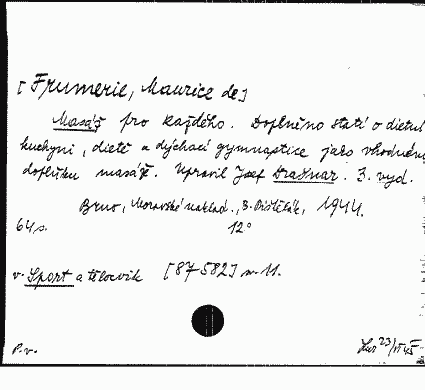 [Frumerie, Maurice de]
Masáž pro každého. Doplněno statí o dietní
kuchyni, dietě a dýchací gymnastice jako vhodném
doplňku masáže. Upravil Josef Drašnar. 3. vyd.
Brno, Moravské naklad., B. Pištělák, 1944.
64 s. 12°
v. Sport a tělocvik [87-582] m 11.
P.v. 23/VI 45